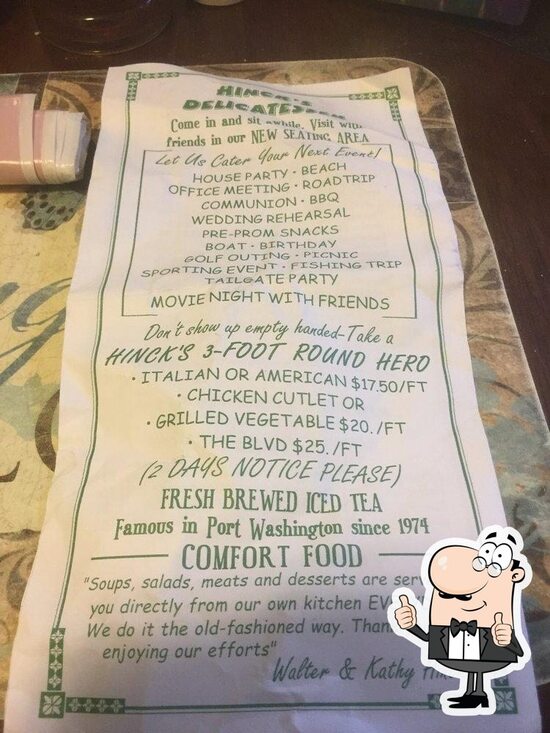 HINCK'S
DELICATESSEN
Come in and sit awhile. Visit with
friends in our NEW SEATING AREA
Let Us Cater Your Next Event!
HOUSE PARTY • BEACH
OFFICE MEETING • ROADTRIP
COMMUNION • BBQ
WEDDING REHEARSAL
PRE-PROM SNACKS
BOAT • BIRTHDAY
GOLF OUTING • PICNIC
SPORTING EVENT • FISHING TRIP
TAILGATE PARTY
MOVIE NIGHT WITH FRIENDS
Don't show up empty handed-Take a
HINCK'S 3-FOOT ROUND HERO
• ITALIAN OR AMERICAN $17.50/FT
• CHICKEN CUTLET OR
• GRILLED VEGETABLE $20./FT
• THE BLVD $25./FT
(2 DAYS NOTICE PLEASE)
FRESH BREWED ICED TEA
Famous in Port Washington since 1974
COMFORT FOOD
"Soups, salads, meats and desserts are
you directly from our own kitchen
We do it the old-fashioned way.
enjoying our efforts"
Walter & Kathy